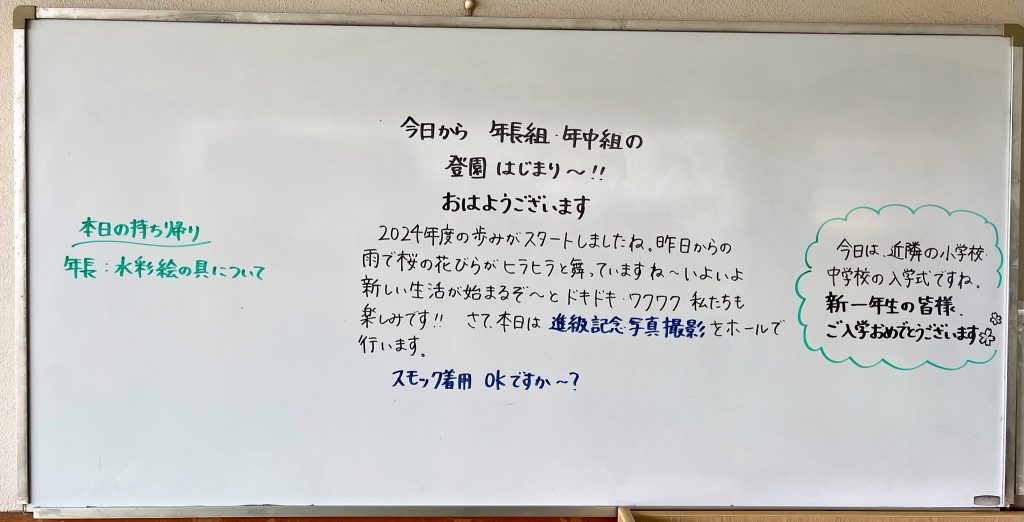 今日から 年長組・年中組の
登園 はじまり〜!!
おはようございます
2024年度の歩みがスタートしましたね。昨日からの
雨で桜の花びらがヒラヒラと舞っていますね〜いよいよ
新しい生活が始まるぞ〜とドキドキ・ワクワク 私たちも
楽しみです!! さて、本日は 進級記念写真撮影をホールで
行います。
スモック着用 OKですか〜?
本日の持ち帰り
年長:水彩絵の具について
今日は、近隣の小学校・
中学校の入学式ですね。
新一年生の皆様、
ご入学おめでとうございます